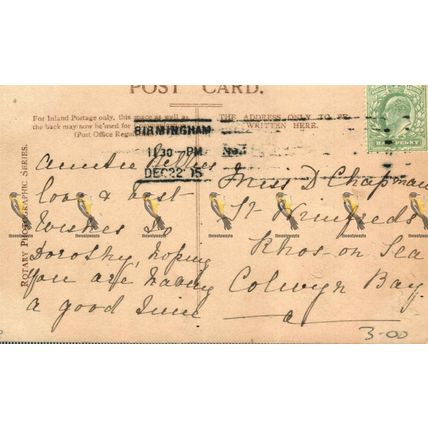 POST CARD.
For Inland Postage only, this space as well as
the back may now be used for
(Post Office Regu
THE ADDRESS ONLY TO BE
WRITTEN HERE.
HALFPENNY
BIRMINGHAM
11.30 PM
DEC 22 05
No.
ROTARY PHOTOGRAPHIC SERIES.
Auntie Nellies
love & best
wishes to
Dorothy, hoping
you are having
a good time
Miss D Chapman
St Winifreds
Rhos-on Sea
Colwyn Bay.
3-00